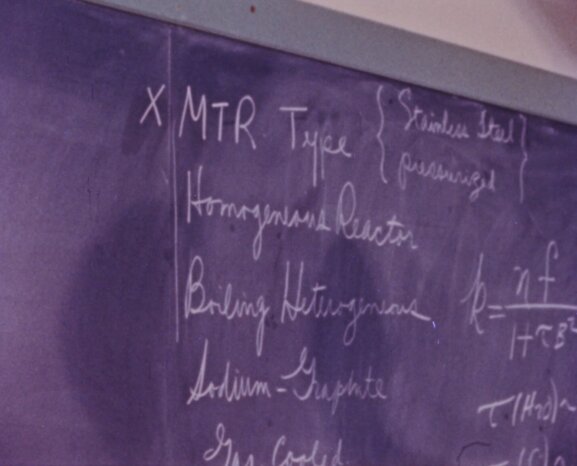 X MTR Type { Stainless Steel
pressurized }
Homogeneous Reactor
Boiling Heterogeneous
k = ηf / 1+τB²
Sodium-Graphite
τ(H₂O)~
Gas Cooled